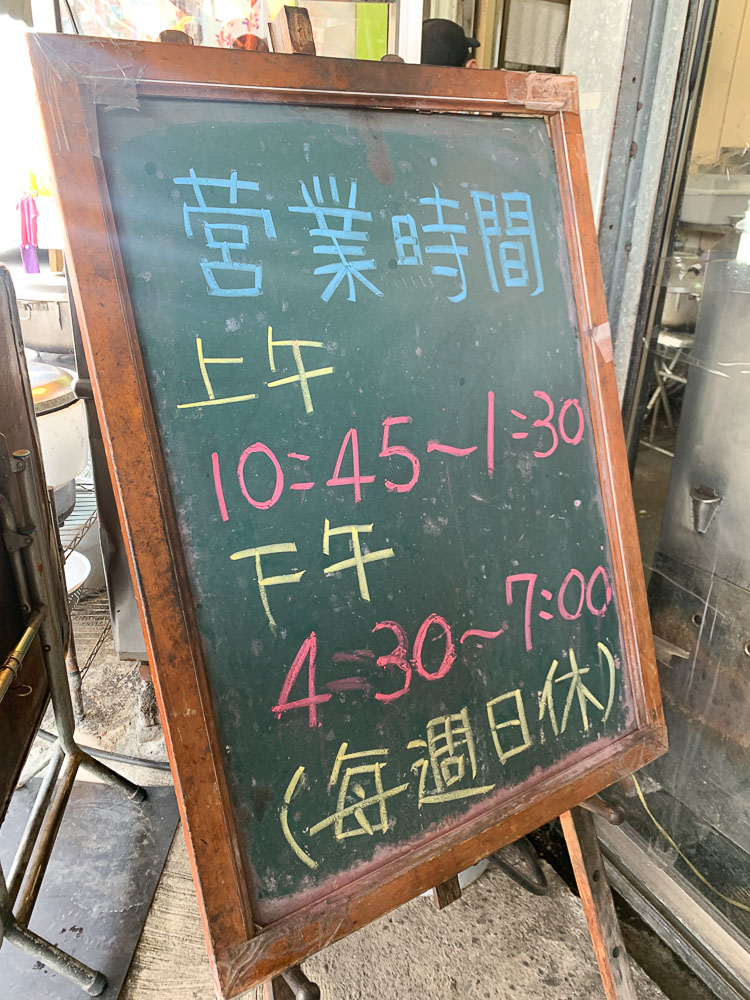 営業時間
上午
10:45~1:30
下午
4:30~7:00
(每週日休)